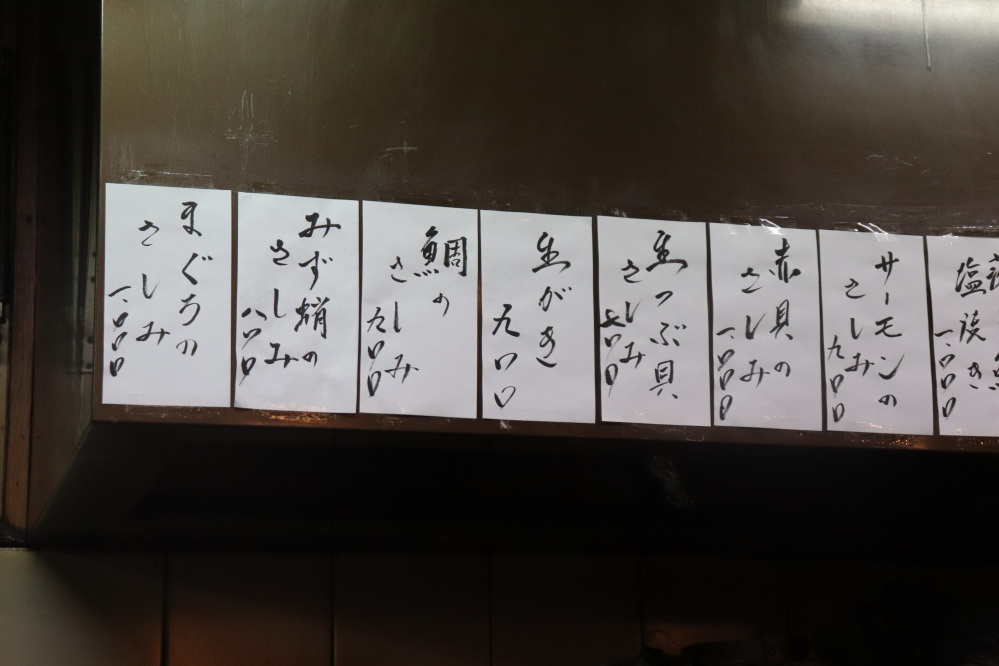 まぐろの
さしみ
一、〇〇〇
みず蛸の
さしみ
八〇〇
鯛の
さしみ
九〇〇
生がき
九〇〇
生つぶ貝
さしみ
七〇〇
赤貝の
さしみ
一、〇〇〇
サーモンの
さしみ
九〇〇
塩焼き
一、〇〇〇